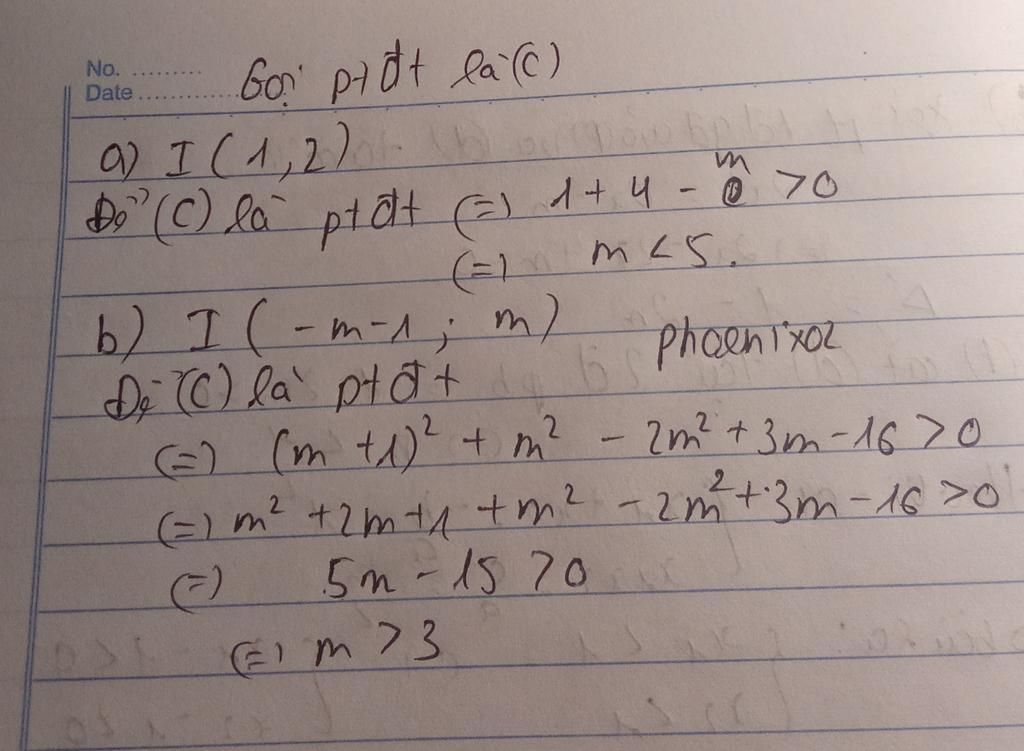 No. ......... Gọi ptđt là (C)
Date ............
a) I (1,2)
Để (C) là ptđt (=) 1 + 4 - m > 0
(=) m < 5.
b) I ( -m-1 ; m)
phoenixoz
Để (C) là ptđt
(=) (m +1)² + m² - 2m² + 3m - 16 > 0
(=) m² + 2m + 1 + m² - 2m² + 3m - 16 > 0
(=) 5m - 15 > 0
(=) m > 3